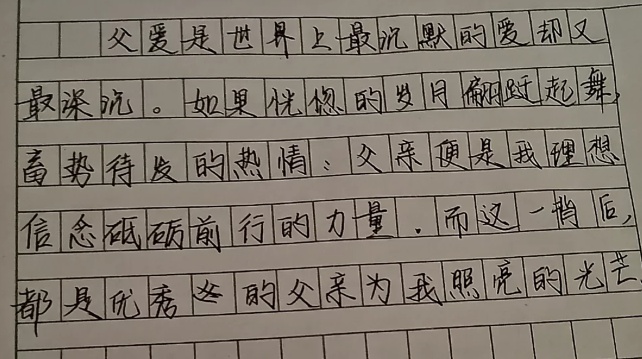 父爱是世界上最沉默的爱却又
最深沉。如果恍惚的岁月翩跹起舞,
畜势待发的热情;父亲便是我理想
信念砥砺前行的力量.而这一背后,
都是优秀的父亲为我照亮的光芒